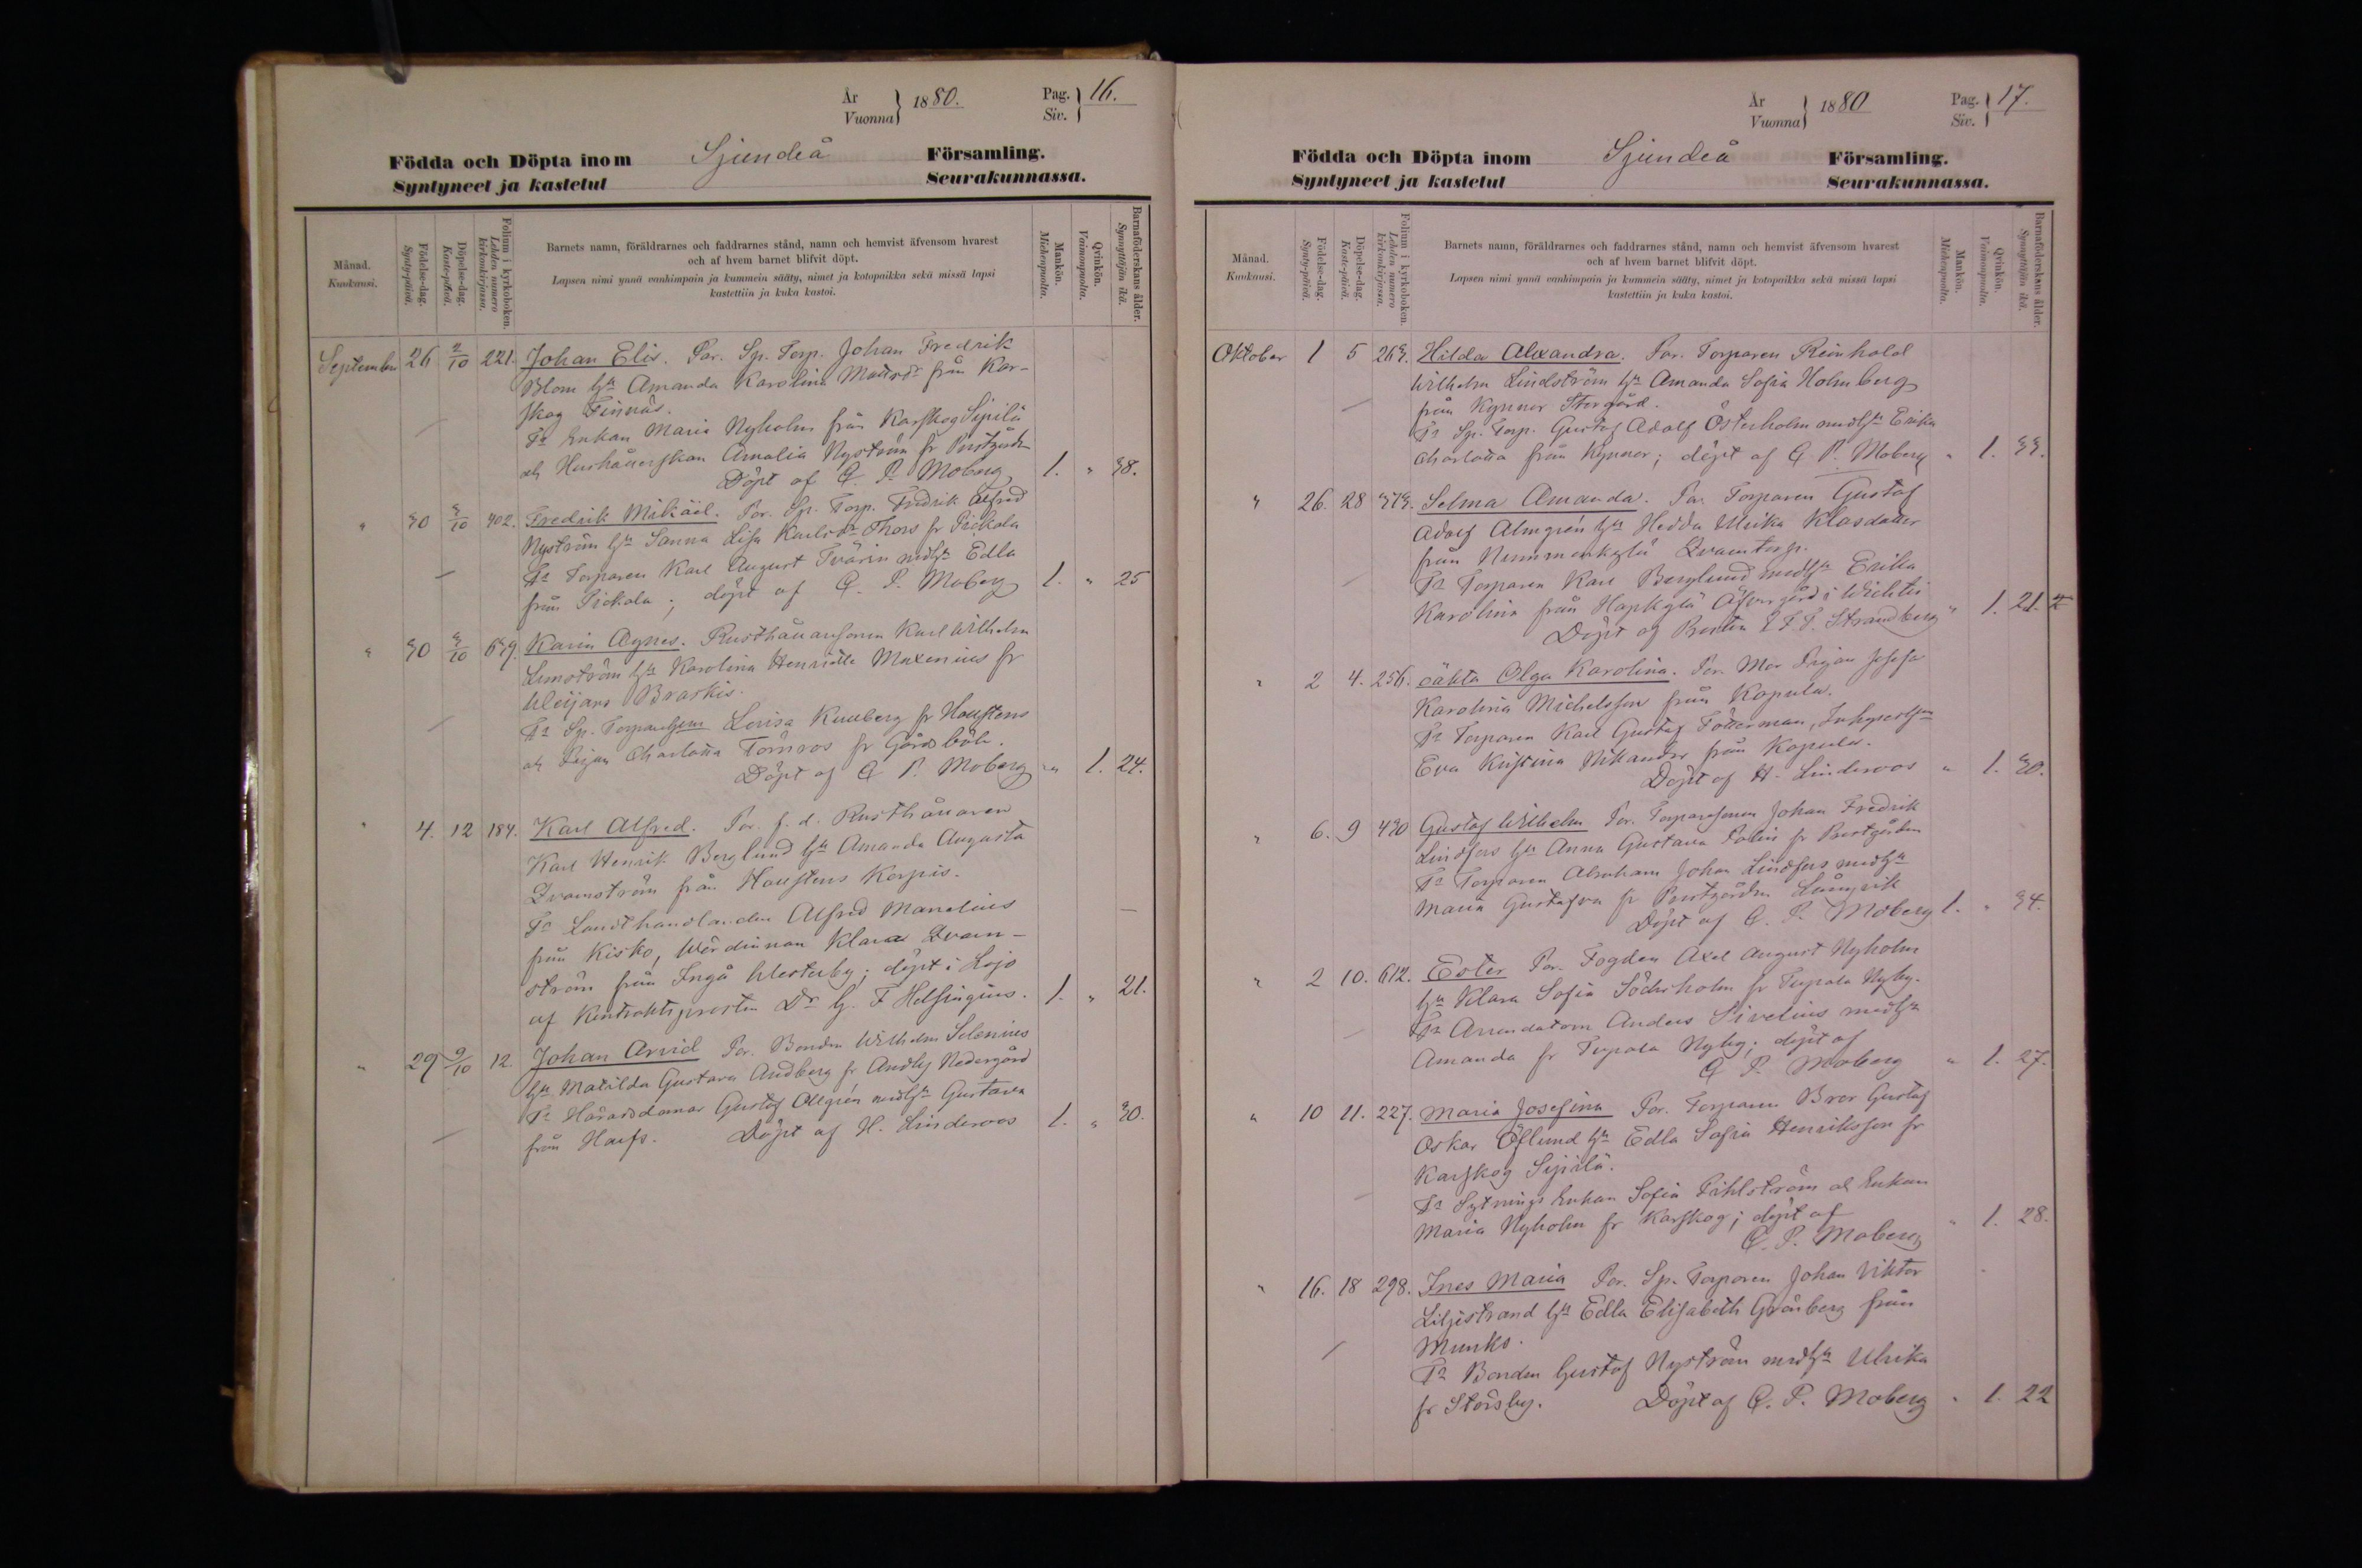 År
Vuonna } 1880.
Pag.
Siv. } 16.
Födda och Döpta inom Sjundeå Församling.
Syntyneet ja kastetut Seurakunnassa.
Månad.
Kuukausi.
Födelse-dag.
Synty-päivä.
Döpelse-dag.
Kaste-päivä.
Folium i kyrkoboken.
Lehden numero kirkonkirjassa.
Barnets namn, föräldrarnes och faddrarnes stånd, namn och hemvist äfvensom hvarest
och af hvem barnet blifvit döpt.
Lapsen nimi ynnä vanhimpain ja kummein sääty, nimet ja kotopaikka sekä missä lapsi
kastettiin ja kuka kastoi.
Mankön.
Miehenpuolta.
Qvinkön.
Vaimonpuolta.
Barnaföderskans ålder.
Synnyttäjän ikä.
September 26 2/10 221. Johan Elis. För. Sp. Torp. Johan Fredrik
Blom hu Amanda Karolina från Kar-
skog Finnäs.
Fr Enkan Maria Nyholm från Karskog Sipilä
och Hushållerskan Amalia Nyström fr Prestgården
Döpt af A. P. Moberg 1. " 38.
" 30 3/10 402. Fredrik Mikäel. För. Sp. Torp. Fredrik Alfred
Nyström hu Sanna Lisa Karlsdr Thors fr Pickala
Fr Torparen Karl August Tvärin med hu Edla
från Pickala; döpt af A. P. Moberg 1. " 25
" 30 3/10 639. Karin Agnes. Rusthållaresonen Karl Wilhelm
Lemström hu Karolina Henriette Maxenius fr
Weijans Braskis.
Fr Sp. Lovisa Kullberg fr Houstens
och Pigan Charlotta Törnroos fr Gårdsböle.
Döpt af A P. Moberg " 1. 24.
" 4. 12 184. Karl Alfred. För. f. d. Rusthållaren
Karl Henrik Berglund hu Amanda Augusta
Qvarnström från Houstens Korpis.
Fr Landthandlanden Alfred Manelius
från Kisko, Wärdinnan Klara Qvarn-
ström från Ingå Westerby; döpt i Lojo
af Kontraktsprosten Dr G. F Helsingius. 1. " 21.
" 29 9/10 12. Johan Arvid För. Bonden Wilhelm Selenius
hu Matilda Gustava Andberg fr Andby Nedergård
Fr Häradsdomar Gustaf Allgrén med hu Gustava
från Harfs. Döpt af H. Linderoos 1. " 30.
År
Vuonna } 1880
Pag.
Siv. } 17.
Födda och Döpta inom Sjundeå Församling.
Syntyneet ja kastetut Seurakunnassa.
Månad.
Kuukausi.
Födelse-dag.
Synty-päivä.
Döpelse-dag.
Kaste-päivä.
Folium i kyrkoboken.
Lehden numero kirkonkirjassa.
Barnets namn, föräldrarnes och faddrarnes stånd, namn och hemvist äfvensom hvarest
och af hvem barnet blifvit döpt.
Lapsen nimi ynnä vanhimpain ja kummein sääty, nimet ja kotopaikka sekä missä lapsi
kastettiin ja kuka kastoi.
Mankön.
Miehenpuolta.
Qvinkön.
Vaimonpuolta.
Barnaföderskans ålder.
Synnyttäjän ikä.
Oktober 1 5 263. Hilda Alexandra. För. Torparen Reinhold
Wilhelm Lindström hu Amanda Sofia Holmberg
från Kynnar Storgård.
Fr Sp. Torp. Gustaf Adolf Österholm med hu Erika
Charlotta från Kynnar; döpt af A. P. Moberg " 1. 33.
" 26. 28 373. Selma Amanda. För. Torparen Gustaf
Adolf Almgrén hu Hedda Ulrika Klasdotter
från Nummenkylä Qvarntorp.
Fr Torparen Karl Berglund med hu Erika
Karolina från Hapkylä Äfvergård i Wichtis
Döpt af Prosten E F F. Strandberg " 1. 21.
" 2 4. 256. oäkta Olga Karolina. För. Mor Pigan Josefa
Karolina Michelsson från Kopula.
Fr Torparen Karl Gustaf Fotterman, Inhysesh:n
Eva Kristina Nikander från Kopula.
Döpt af H. Linderoos " 1. 30.
" 6. 9 430 Gustaf Wilhelm För. Torparesonen Johan Fredrik
Lindfors hu Anna Gustava Palin fr Prestgården
Fr Torparen Abraham Johan Lindfors med hu
Maria Gustafva fr Prestgården Långvik
Döpt af A. P. Moberg 1. " 34.
" 2 10. 612. Ester För. Fogden Axel August Nyholm
hu Klara Sofia Söderholm fr Tupala Nyby.
Fr Arrendatorn Anders Sivelius med hu
Amanda fr Tupala Nyby; döpt af
A P. Moberg " 1. 27.
" 10 11. 227. Maria Josefina För. Torparen Bror Gustaf
Oskar Öflund hu Edla Sofia Henriksson fr
Karskog Sipilä.
Fr Sytnings Enkan Sofia Pihlström och Enkan
Maria Nyholm fr Karskog; döpt af
A. P. Moberg " 1. 28.
" 16. 18 298. Ines Maria För. Sp. Torparen Johan Viktor
Liljestrand hu Edla Elisabeth Grönberg från
Munks.
Fr Bonden Gustaf Nyström med hu Ulrika
fr Störsby. Döpt af A. P. Moberg " 1. 22